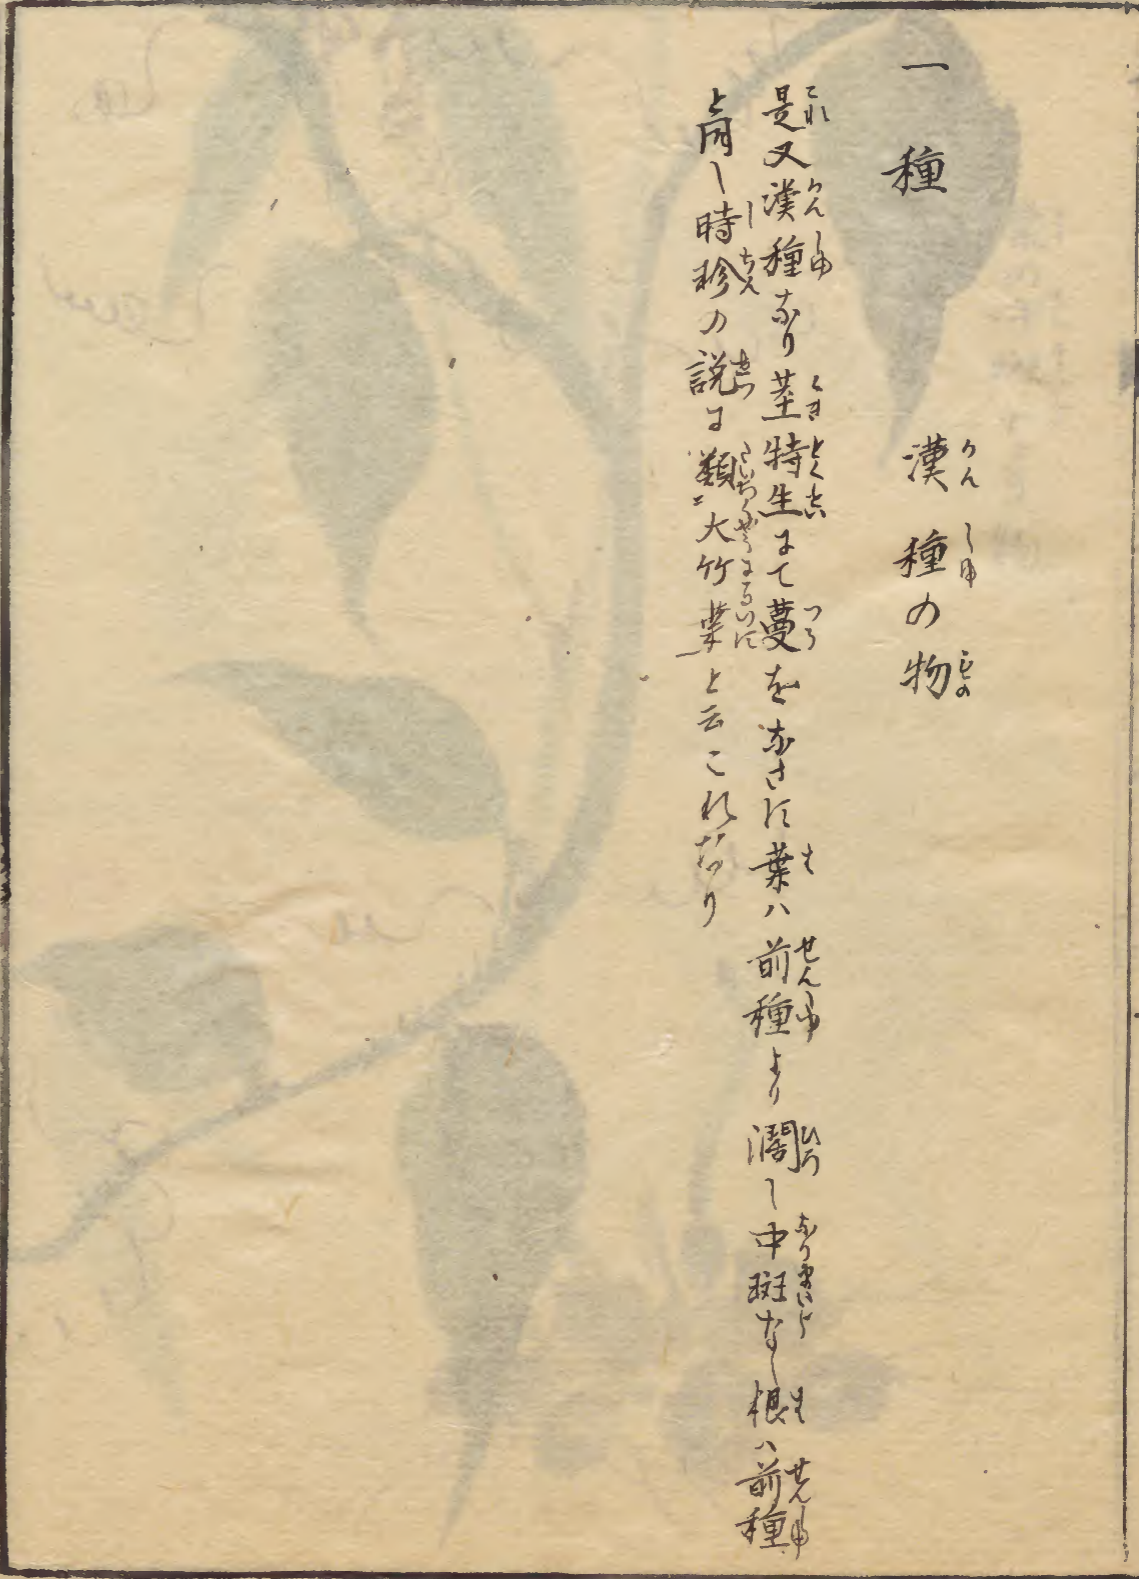 一種　漢種の物
是又漢種なり茎特生にて蔓をなさす葉ハ前種より濶し中斑なし根ハ前種
と同し時珍の説に類二大竹葉一と云これなり